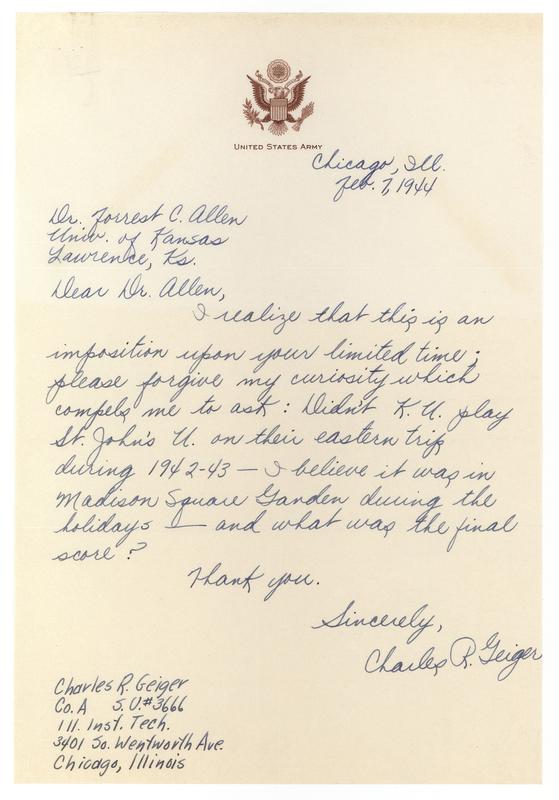 UNITED STATES ARMY
Chicago, Ill.
Feb. 7, 1944
Dr. Forrest C. Allen
Univ. of Kansas
Lawrence, Ks.
Dear Dr. Allen,
I realize that this is an
imposition upon your limited time;
please forgive my curiosity which
compels me to ask: Didn't K.U. play
St. John's U. on their eastern trip
during 1942-43 — I believe it was in
Madison Square Garden during the
holidays — and what was the final
score?
Thank you.
Sincerely,
Charles R. Geiger
Charles R. Geiger
Co. A S.U.#3666
Ill. Inst. Tech.
3401 So. Wentworth Ave.
Chicago, Illinois